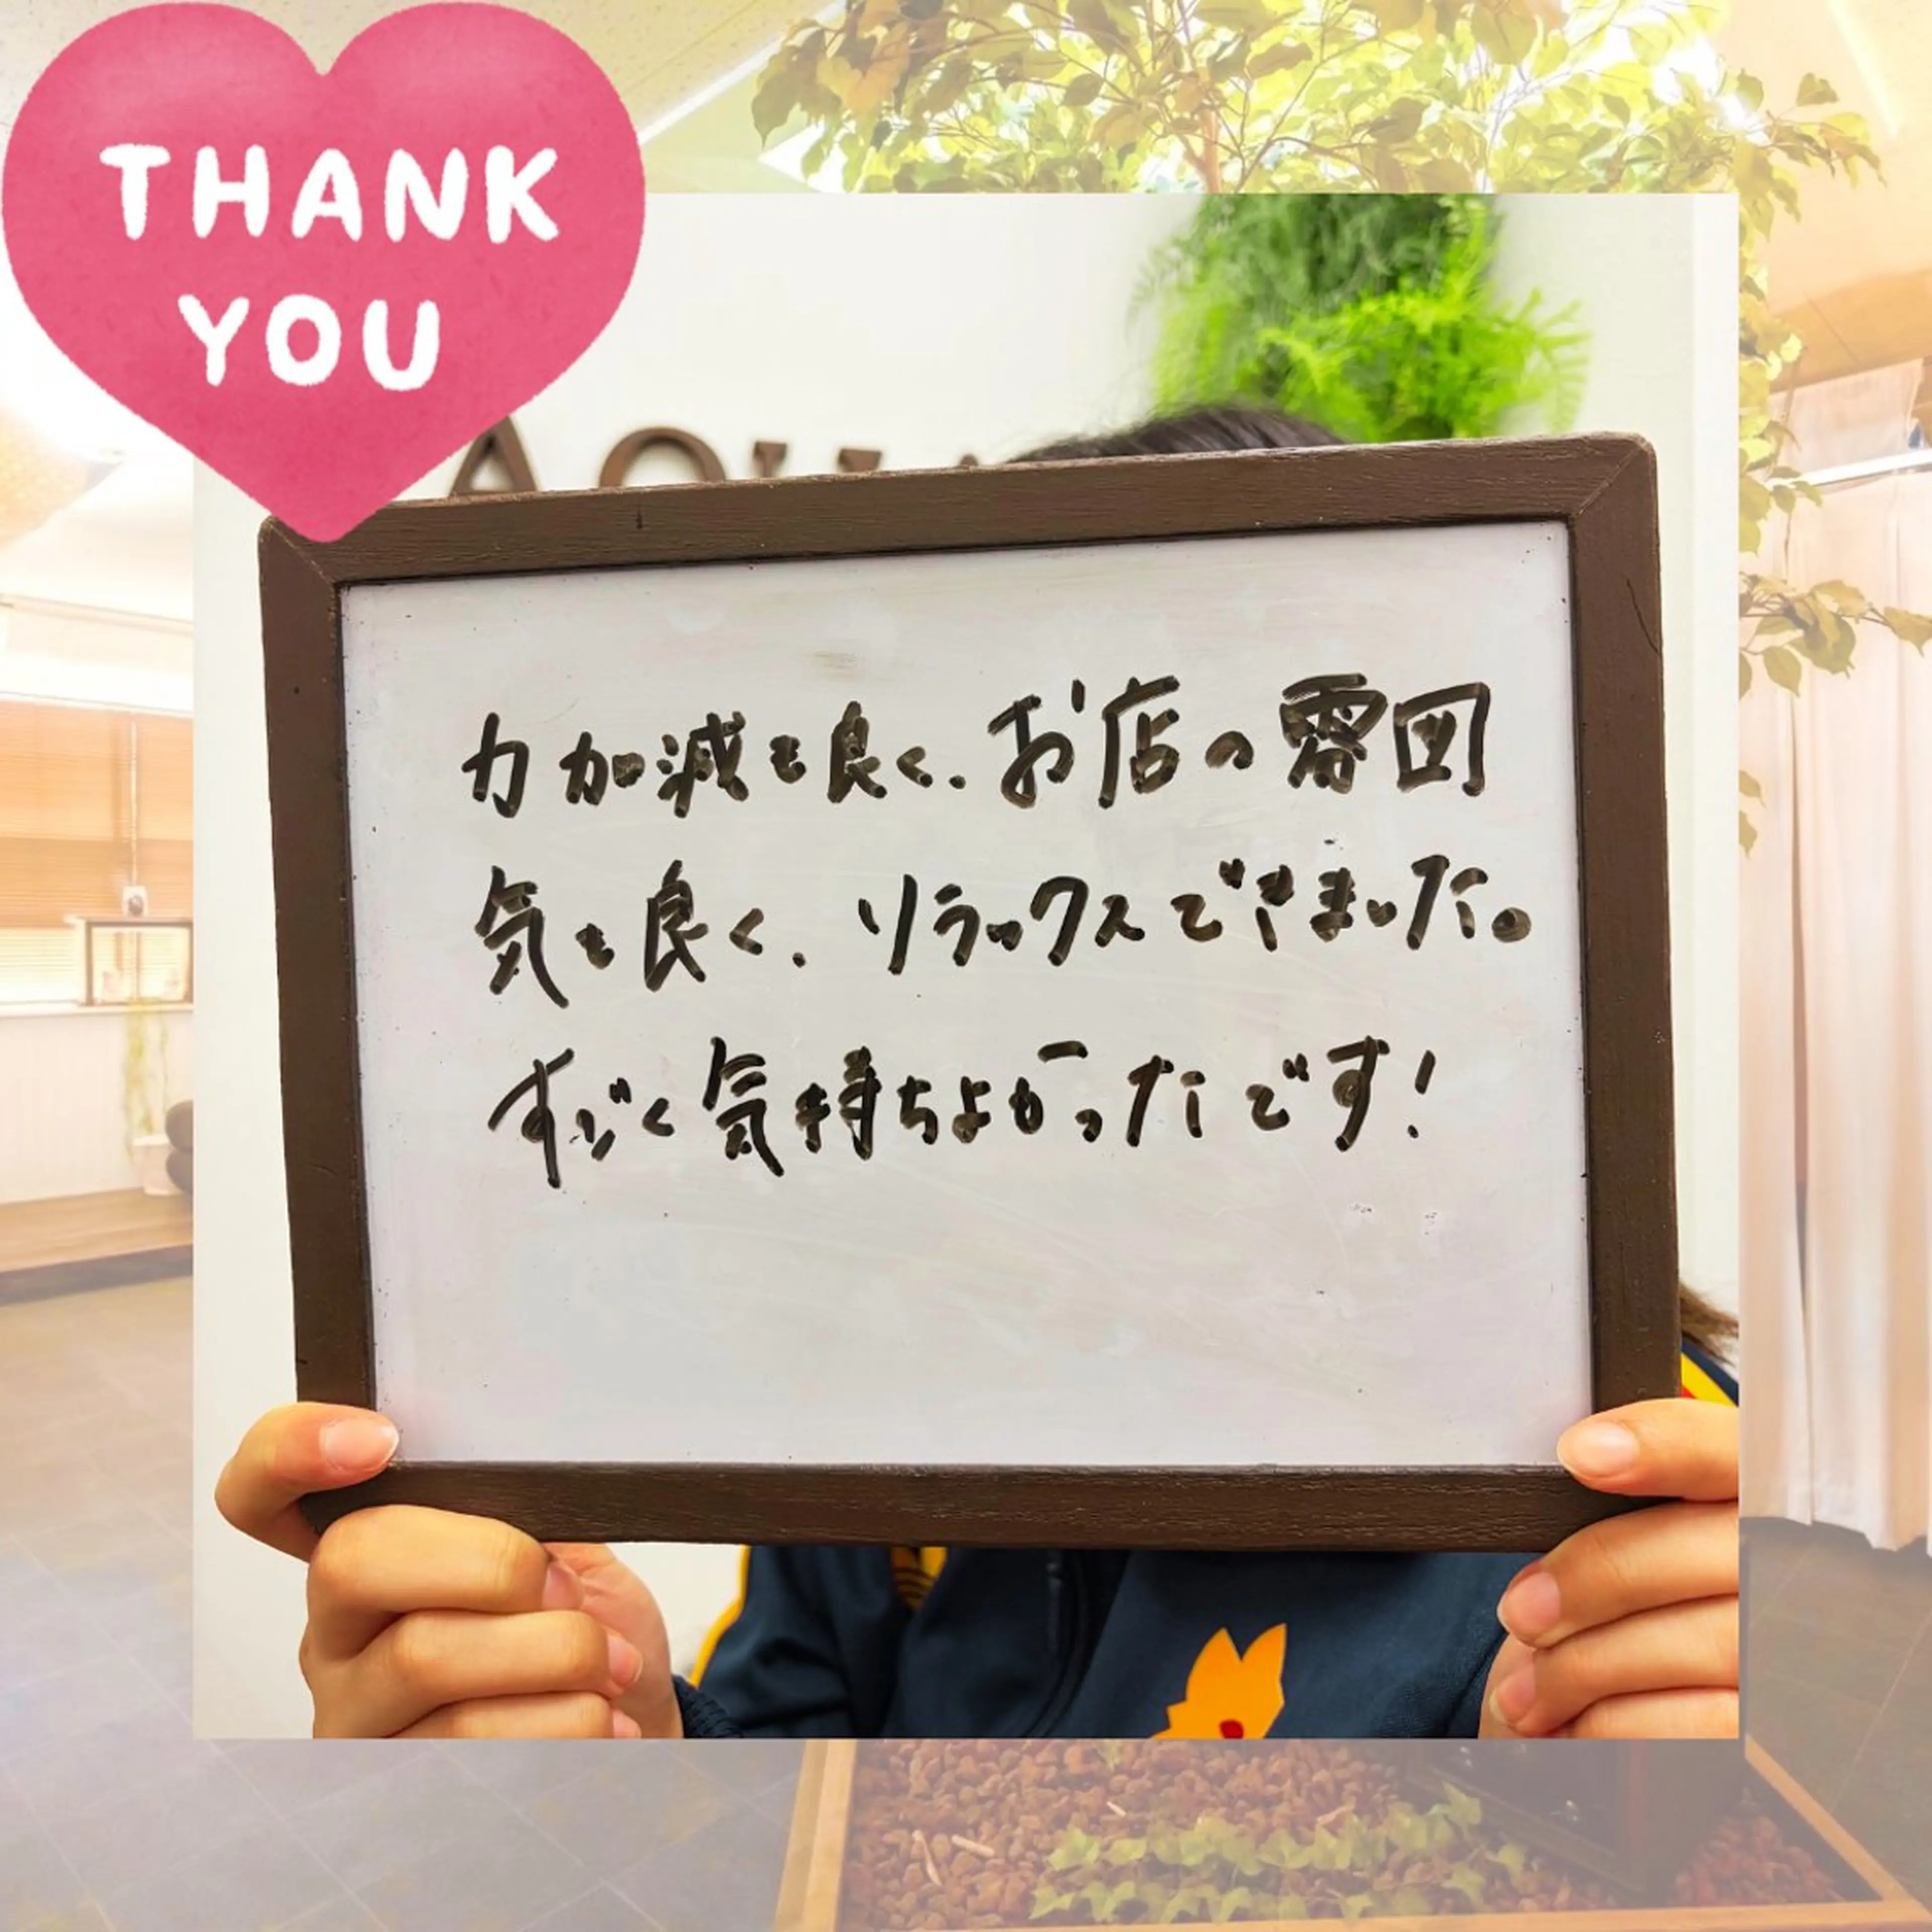 THANK
YOU
AQUA
力加減も良く、お店の雰囲
気も良く、リラックスできました。
すごく気持ちよかったです!